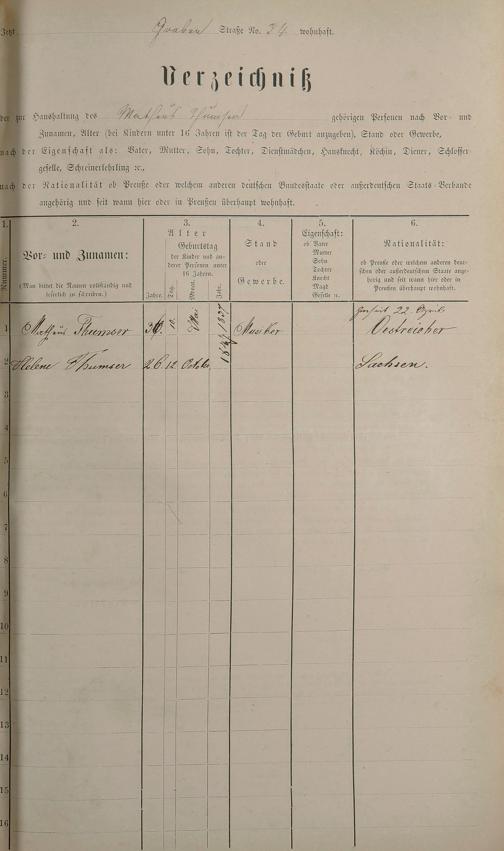 Jetzt Graben Straße No. 34 wohnhaft.
Verzeichniß
der zur Haushaltung des Mathäus Thumser gehörigen Personen nach Vor- und
Zunamen, Alter (bei Kindern unter 16 Jahren ist der Tag der Geburt anzugeben), Stand oder Gewerbe,
nach der Eigenschaft als: Vater, Mutter, Sohn, Tochter, Dienstmädchen, Hausknecht, Köchin, Diener, Schlosser-
geselle, Schreinerlehrling ꝛc.,
nach der Nationalität ob Preuße oder welchem anderen deutschen Bundesstaate oder außerdeutschen Staats-Verbande
angehörig und seit wann hier oder in Preußen überhaupt wohnhaft.
1. 2. 3. 4. 5. 6.
Nummer.
Vor- und Zunamen:
(Man bittet die Namen vollständig und
leserlich zu schreiben.)
Alter
Geburtstag
der Kinder und an-
derer Personen unter
16 Jahren.
Jahre. Tag. Monat. Jahr.
Stand
oder
Gewerbe.
Eigenschaft:
ob Vater
Mutter
Sohn
Tochter
Knecht
Magd
Geselle ꝛc.
Nationalität:
ob Preuße oder welchen anderen deut-
schen oder außerdeutschen Staate ange-
hörig und seit wann hier oder in
Preußen überhaupt wohnhaft.
22 April
1 Mathäus Thumser 10. Mai Musiker Oestreicher
2 Helene Thumser 26 12 Octobr. Sachsen.
3
4
5
6
7
8
9
10
11
12
13
14
15
16